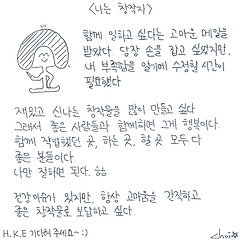 <나는 창작자>
함께 일하고 싶다는 고마운 메일을
받았다. 당장 손을 잡고 싶었지만,
내 부족함을 알기에 수정할 시간이
필요했다.
재밌고 신나는 창작물을 많이 만들고 싶다.
그래서 좋은 사람들과 함께하면 그게 행복이다.
함께 작업했던 곳, 하는 곳, 할 곳 모두 다
좋은 분들이다.
나만 잘하면 된다.
건강 이유가 있지만, 항상 고마움을 간직하고
좋은 창작물로 보답하고 싶다.
H.K.E 기다려 주세요~:)
choi